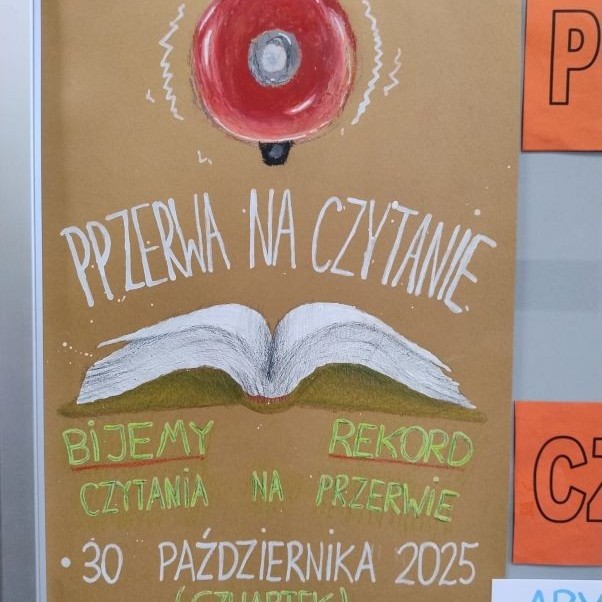 PPZERWA NA CZYTANIE
BIJEMY REKORD
CZYTANIA NA PRZERWIE
• 30 PAŹDZIERNIKA 2025
(CZWARTEK)
P
CZ